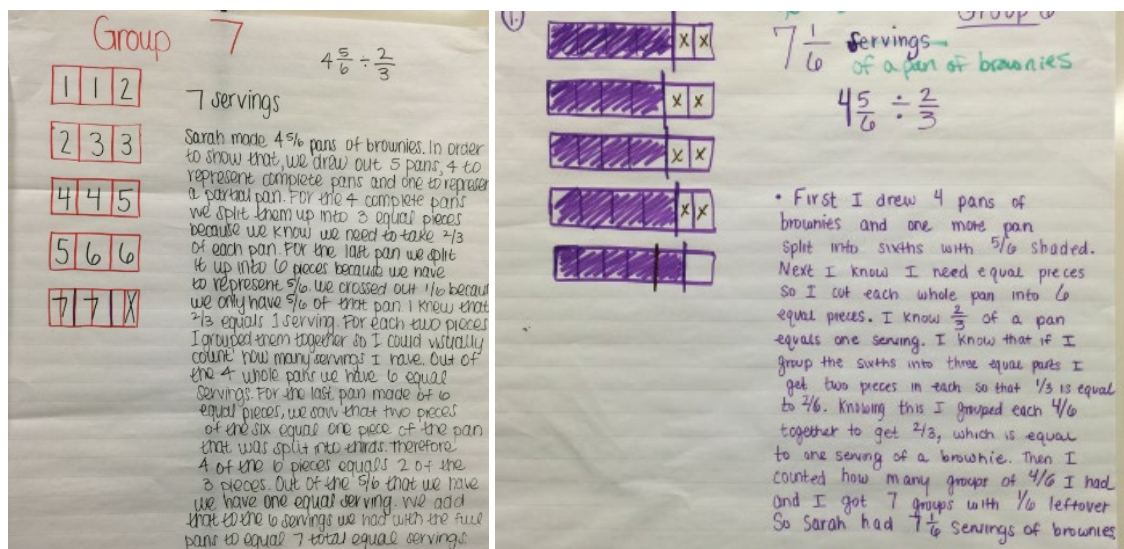 Group 7
4 5/6 ÷ 2/3
1 1 2
2 3 3
4 4 5
5 6 6
7 7 X
7 servings
Sarah made 4 5/6 pans of brownies. In order
to show that, we drew out 5 pans, 4 to
represent complete pans and one to represen
a partial pan. For the 4 complete pans
we split them up into 3 equal pieces
because we know we need to take 2/3
of each pan. For the last pan we split
it up into 6 pieces because we have
to represent 5/6. We crossed out 1/6 becau
we only have 5/6 of that pan. I knew that
2/3 equals 1 serving. For each two pieces
I grouped them together so I could visually
count how many servings I have. Out of
the 4 whole pans we have 6 equal
servings. For the last pan made of 6
equal pieces, we saw that two pieces
of the six equal one piece of the pan
that was split into thirds. Therefore
4 of the 6 pieces equals 2 of the
3 pieces. Out of the 5/6 that we have
we have one equal serving. We add
that to the 6 servings we had with the full
pans to equal 7 total equal servings.
1.
x x
x x
x x
x x
Group 6
7 1/6 servings
of a pan of brownies
4 5/6 ÷ 2/3
• First I drew 4 pans of
brownies and one more pan
split into sixths with 5/6 shaded.
Next I know I need equal pieces
so I cut each whole pan into 6
equal pieces. I know 2/3 of a pan
equals one serving. I know that if I
group the sixths into three equal parts I
get two pieces in each so that 1/3 is equal
to 2/6. Knowing this I grouped each 4/6
together to get 2/3, which is equal
to one serving of a brownie. Then I
counted how many groups of 4/6 I had
and I got 7 groups with 1/6 leftover
So Sarah had 7 1/6 servings of brownies